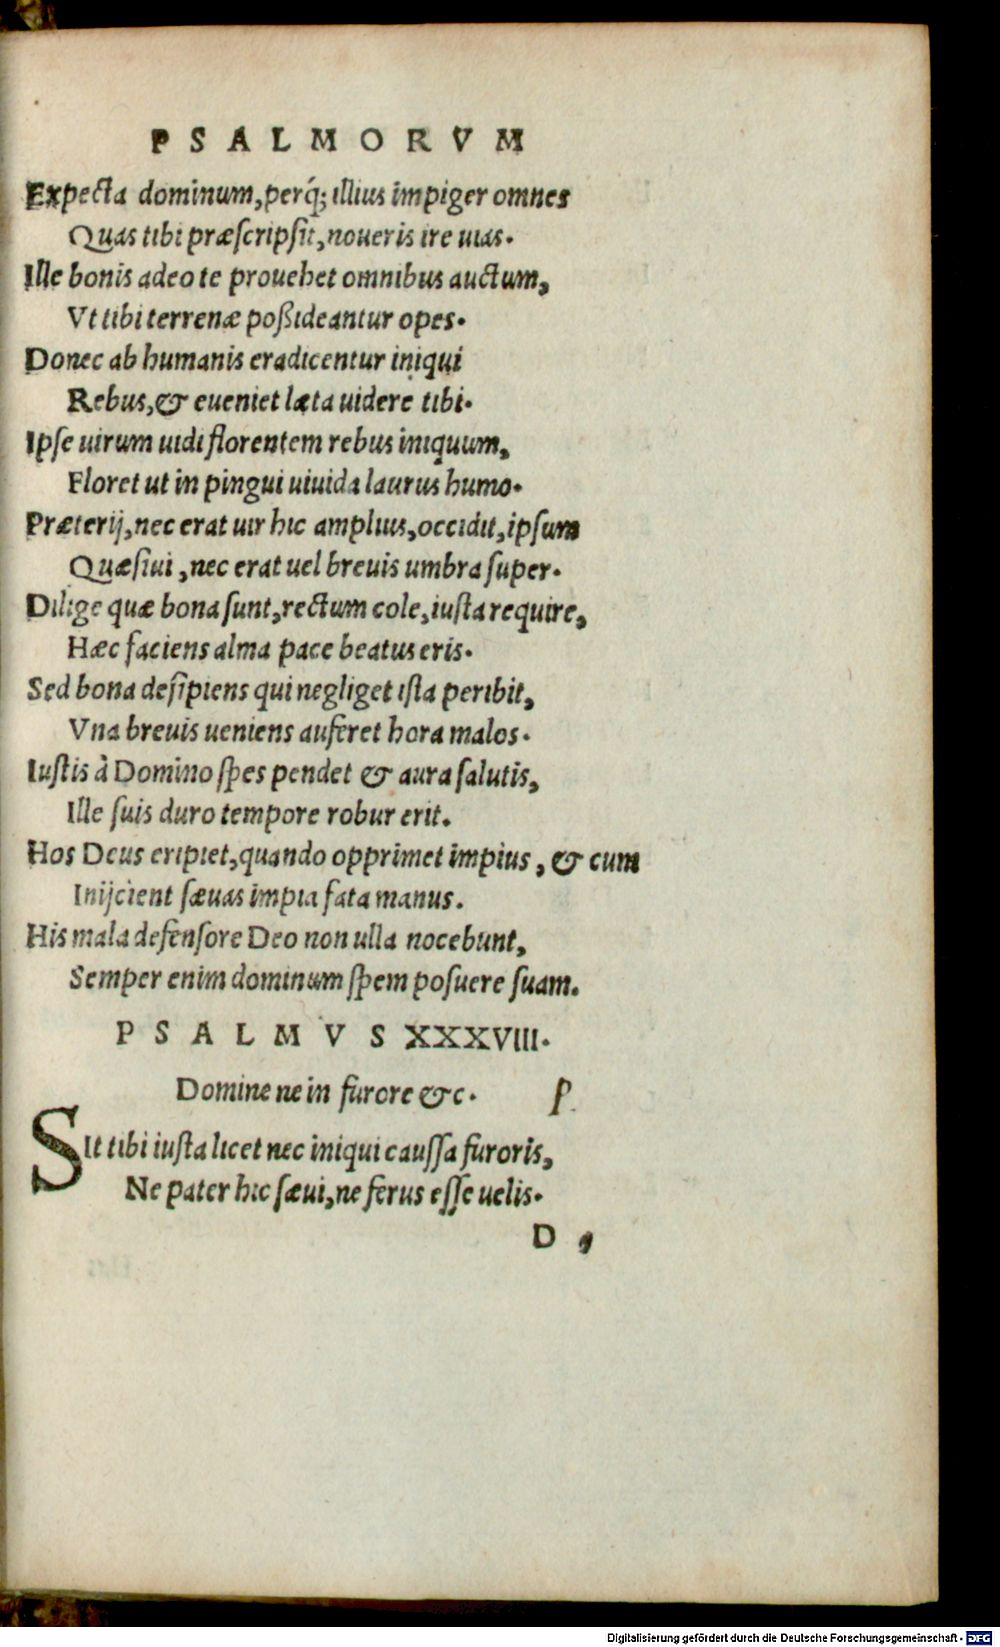 PSALMORVM
Expecta dominum, perq́; illius impiger omnes
Quas tibi præscripsit, noueris ire uias.
Ille bonis adeo te prouehet omnibus auctum,
Vt tibi terrenæ poßideantur opes.
Donec ab humanis eradicentur iniqui
Rebus, & eueniet læta uidere tibi.
Ipse uirum uidi florentem rebus iniquum,
Floret ut in pingui uiuida laurus humo.
Præterij, nec erat uir hic amplius, occidit, ipsum
Quæsiui, nec erat uel breuis umbra super.
Dilige quæ bona sunt, rectum cole, iusta require,
Hæc faciens alma pace beatus eris.
Sed bona desipiens qui negliget ista peribit,
Vna breuis ueniens auferet hora malos.
Iustis à Domino spes pendet & aura salutis,
Ille suis duro tempore robur erit.
Hos Deus eripiet, quando opprimet impius, & cum
Inijcient sæuas impia fata manus.
His mala defensore Deo non ulla nocebunt,
Semper enim dominum spem posuere suam.
PSALMVS XXXVIII.
Domine ne in furore &c. P.
Sit tibi iusta licet nec iniqui caussa furoris,
Ne pater hic sæui, ne ferus esse uelis.
D
Digitalisierung gefördert durch die Deutsche Forschungsgemeinschaft - DFG